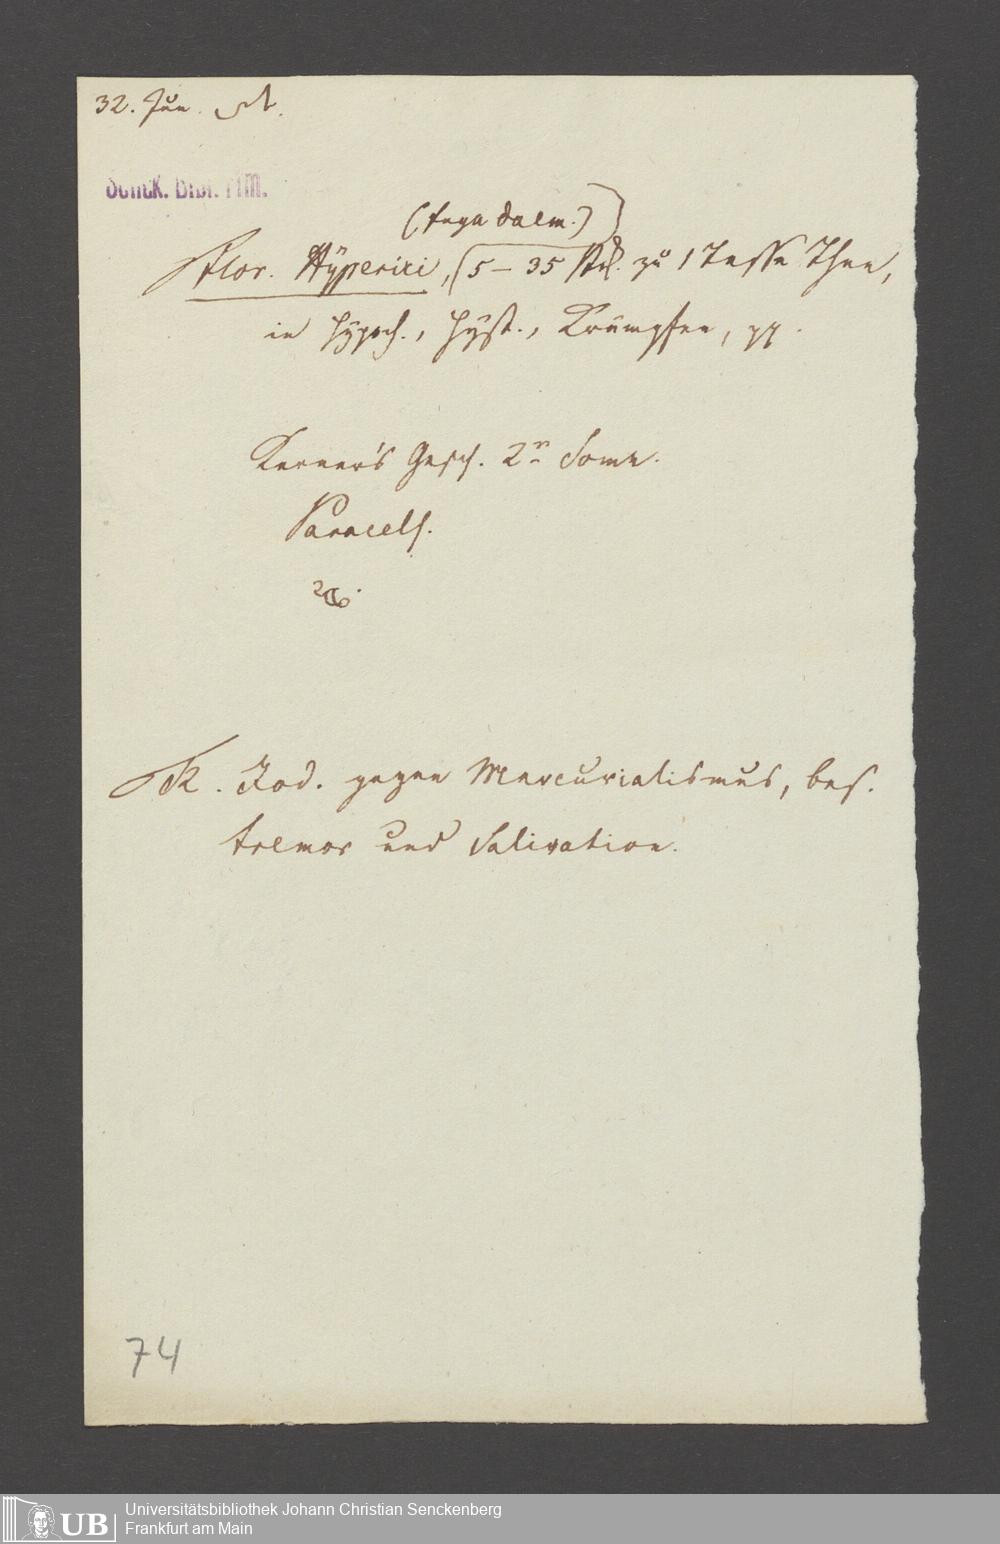 32. Jun.
Senck. Bibl. Ffm.
(fuga dæm.)
Flor. Hÿperici, (5–35 Stck. zu 1 Tasse Thee,
in Hÿpoch., Hÿst., Krämpfen, pp.
Kerner's Gesch. 2r Somn.
Paracels.
K. Jod. gegen Mercurialismus, bes.
tremor und Salivation.
74
UB
Universitätsbibliothek Johann Christian Senckenberg
Frankfurt am Main